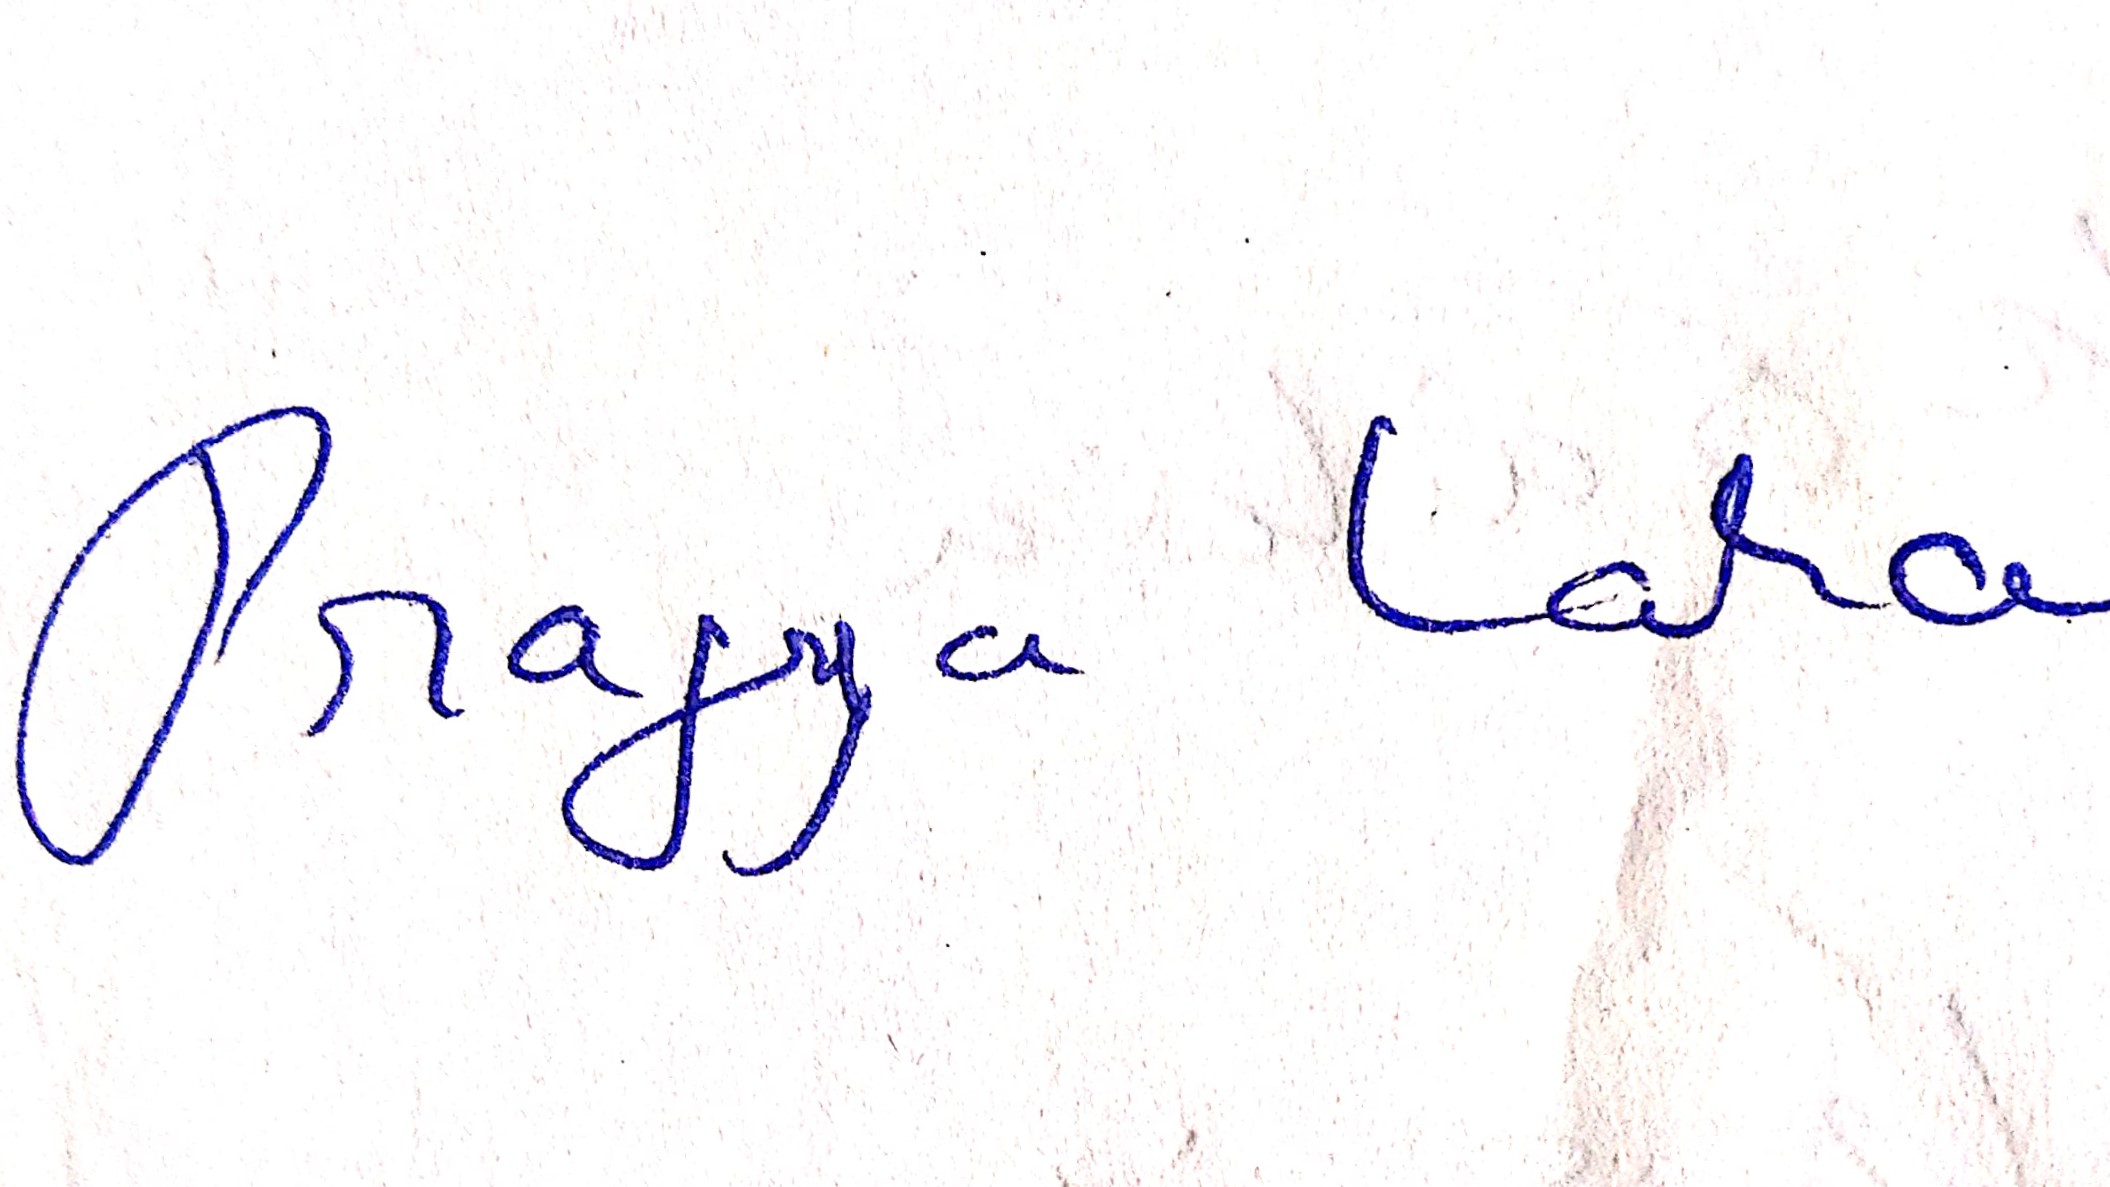 Pragya Lara